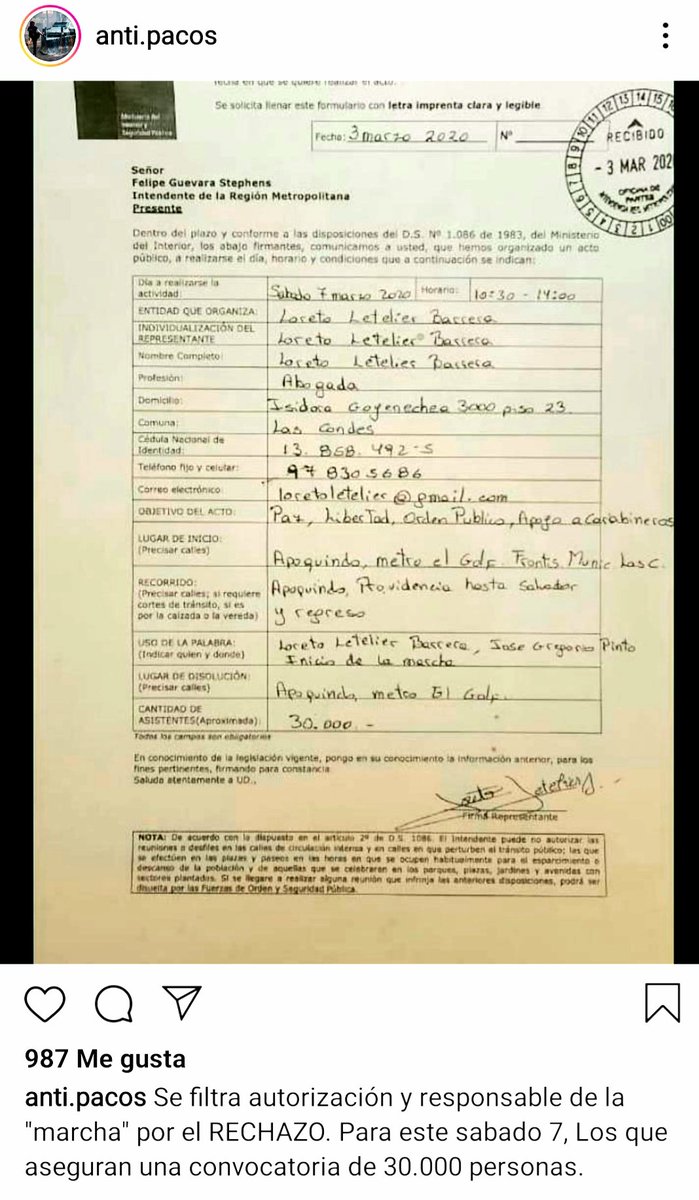 anti.pacos
Ministerio del
Interior y
Seguridad Pública
fecha en que se quiere realizar el acto.
Se solicita llenar este formulario con letra imprenta clara y legible
Fecha: 3 marzo 2020 Nº
RECIBIDO
- 3 MAR 202
OFICINA DE
PARTES
Señor
Felipe Guevara Stephens
Intendente de la Región Metropolitana
Presente
Dentro del plazo y conforme a las disposiciones del D.S. Nº 1.086 de 1983, del Ministerio
del Interior, los abajo firmantes, comunicamos a usted, que hemos organizado un acto
público, a realizarse el día, horario y condiciones que a continuación se indican:
Día a realizarse la
actividad: Sábado 7 marzo 2020 Horario: 10:30 - 14:00
ENTIDAD QUE ORGANIZA: Loreto Letelier Barrera
INDIVIDUALIZACIÓN DEL
REPRESENTANTE Loreto Letelier Barrera
Nombre Completo: Loreto Letelier Barrera
Profesión: Abogada
Domicilio: Isidora Goyenechea 3000 piso 23
Comuna: Las Condes
Cédula Nacional de
Identidad: 13.868.492-5
Teléfono fijo y celular: 97 830 5686
Correo electrónico: loretoletelier@gmail.com
OBJETIVO DEL ACTO: Paz, Libertad, Orden Publico, Apoyo a Carabineros
LUGAR DE INICIO:
(Precisar calles) Apoquindo, metro el Golf. Frontis Munic Las C.
RECORRIDO:
(Precisar calles; si requiere
cortes de tránsito, si es
por la calzada o la vereda) Apoquindo, Providencia hasta Salvador
y regreso
USO DE LA PALABRA:
(Indicar quien y donde) Loreto Letelier Barrera, Jose Gregorio Pinto
Inicio de la marcha
LUGAR DE DISOLUCIÓN:
(Precisar calles) Apoquindo, metro El Golf.
CANTIDAD DE
ASISTENTES(Aproximada): 30.000.-
Todos los campos son obligatorios
En conocimiento de la legislación vigente, pongo en su conocimiento la información anterior, para los
fines pertinentes, firmando para constancia.
Saluda atentamente a UD.,
Firma Representante
NOTA: De acuerdo con la dispuesta en el artículo 2º de D.S. 1086. El Intendente puede no autorizar las
reuniones o desfiles en las calles de circulación intensa y en calles en que perturben el tránsito público; las que
se efectúen en las plazas y paseos en las horas en que se ocupen habitualmente para el esparcimiento o
descanso de la población y de aquellas que se celebraren en los parques, plazas, jardines y avenidas con
sectores plantados. Si se llegare a realizar alguna reunión que infrinja las anteriores disposiciones, podrá ser
disuelta por las Fuerzas de Orden y Seguridad Pública.
987 Me gusta
anti.pacos Se filtra autorización y responsable de la
"marcha" por el RECHAZO. Para este sabado 7, Los que
aseguran una convocatoria de 30.000 personas.